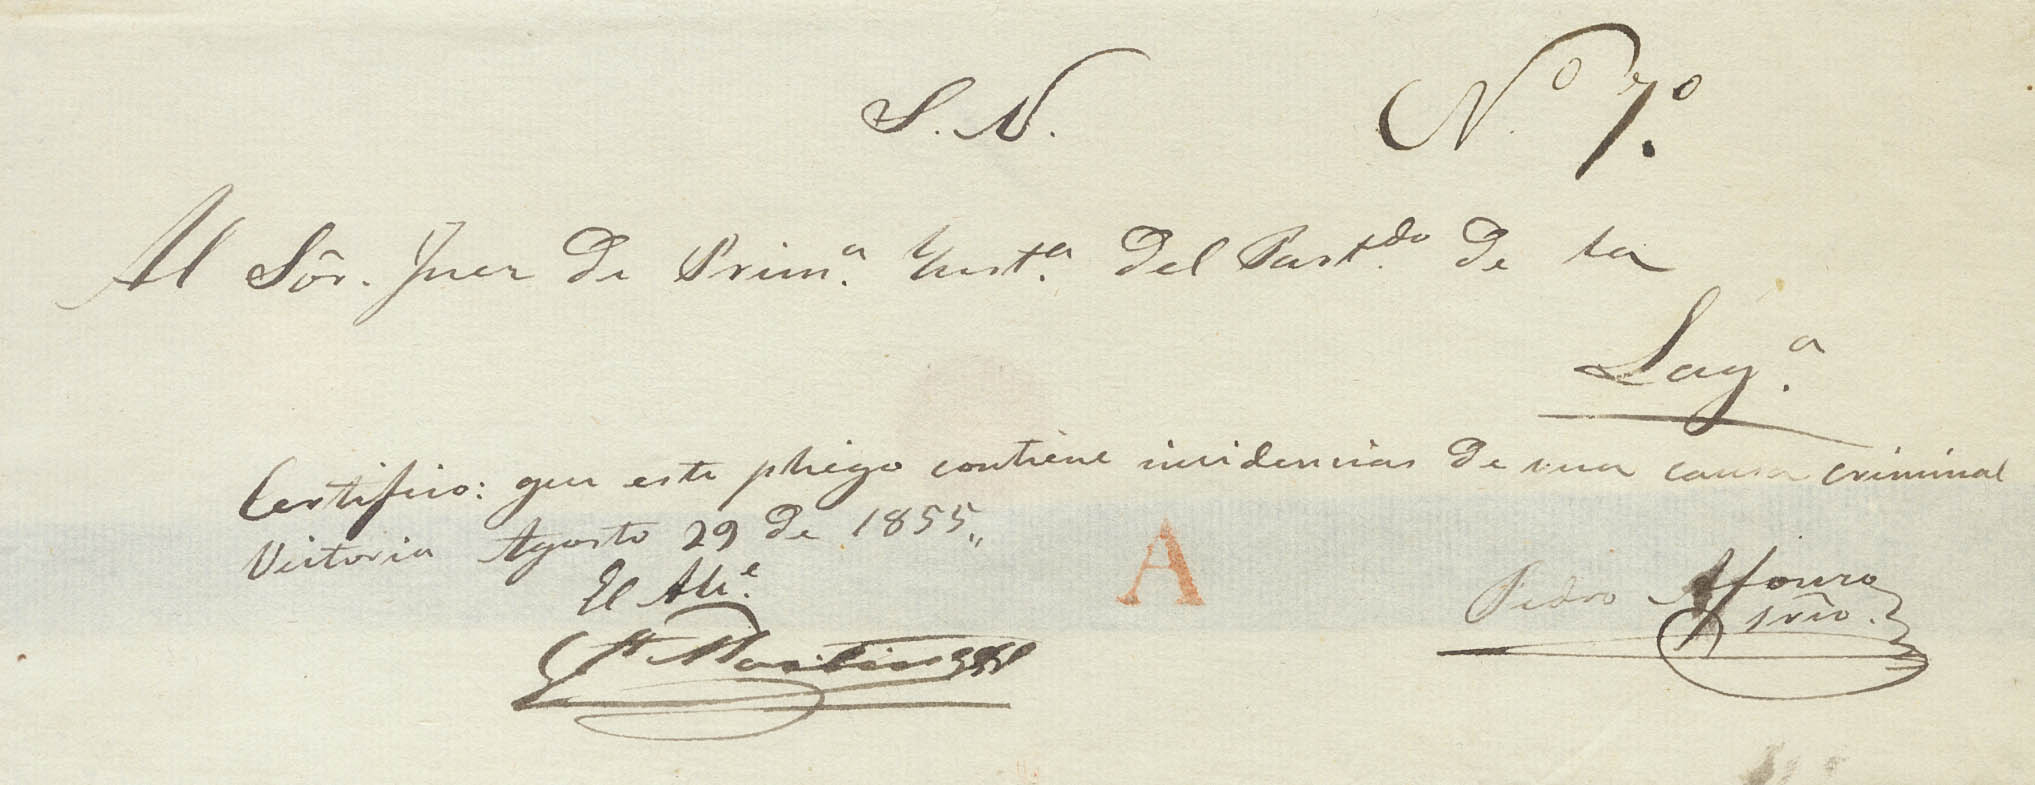 S. N. Nº 7º.
Al Sôr. Juez de Primª. Ynstª. del Partdo. de la
Lagª.
Certifico: que este pliego contiene incidencias de una causa criminal
Victoria Agosto 29 de 1855„
El Alce.
Martinez
Pedro Afonzo
srio.
A